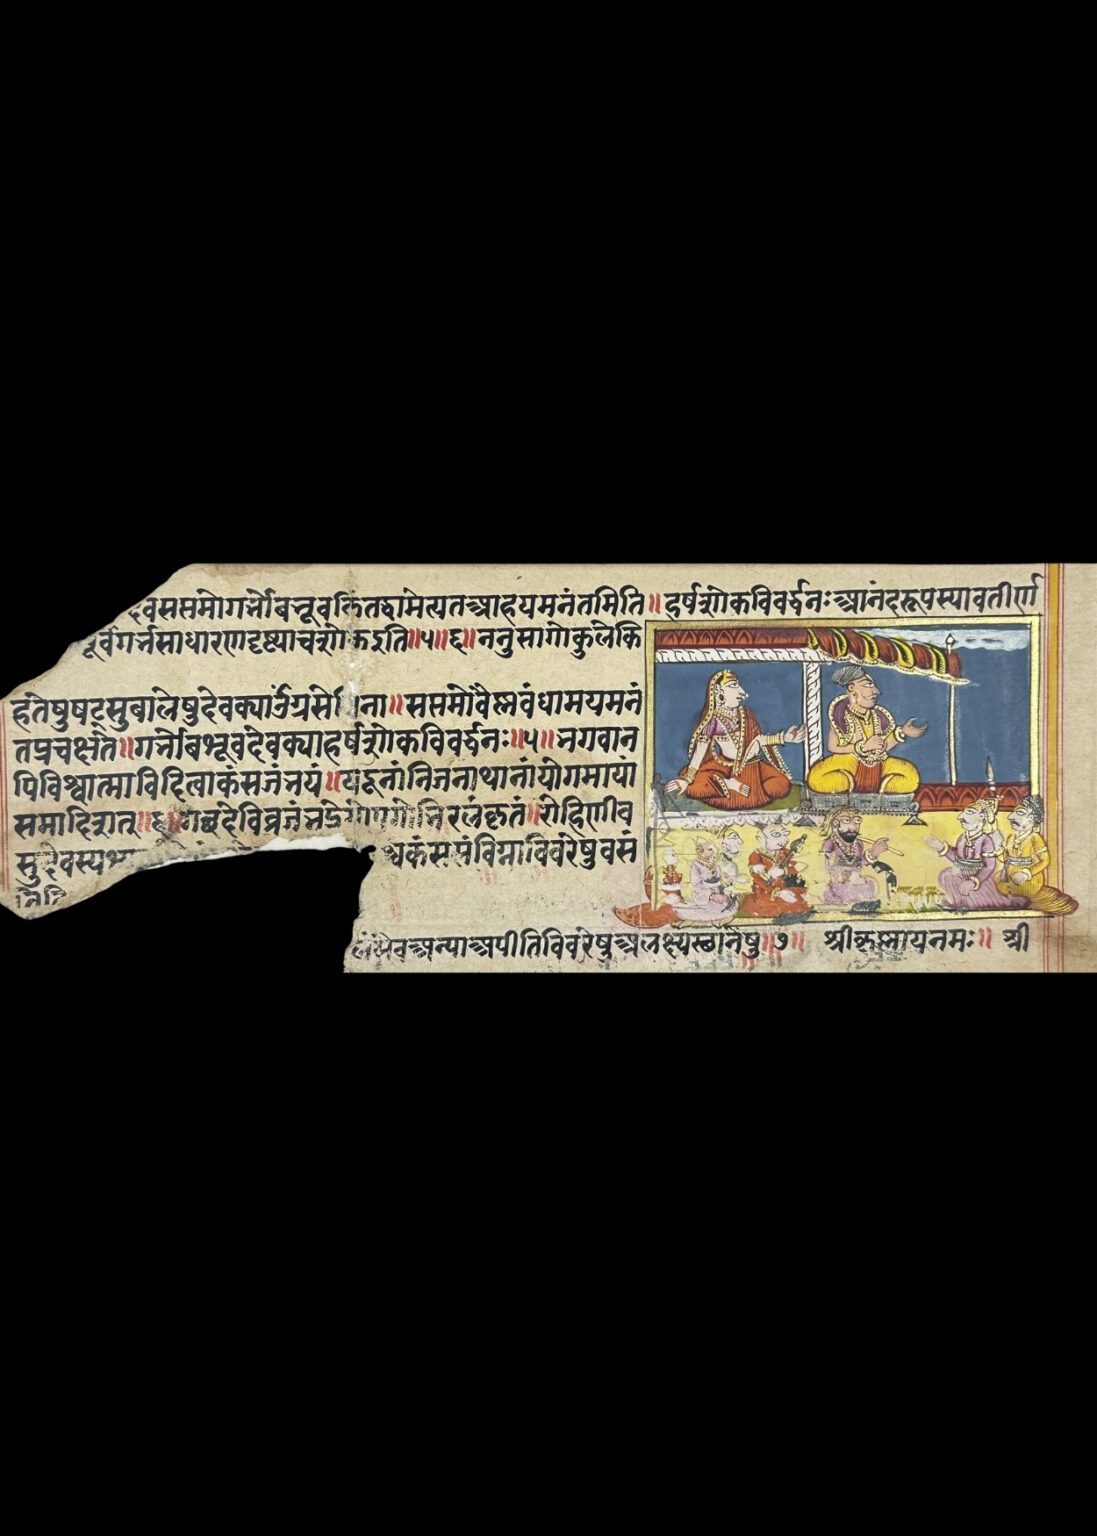 देवससमोगर्भोबभूवकिंतद्धामेत्यतआहयमनंतमिति॥ हर्षशोकविवर्द्धनःआनंदरूपस्यावतीर्ण
पूर्वगर्भसाधारणदृष्ट्याचशोकइति॥५॥६॥ननुसागोकुलेकि
हतेषुषट्सुबालेषुदेवक्या ना॥ससमोवैस्नवंधामयमनं
तप्रचक्षते॥गर्भोबभूवदेवक्याहर्षशोकविवर्द्धनः॥५॥भगवान
पिविश्वात्माविदित्वाकंसजंभयं॥यदूनांनिजनाथानांयोगमायां
समादिशत्॥६॥गछदेविव्रजंभद्रे रलंकृतं॥रोहिणीव
सुदेवस्य कंससंविग्नाविवरेषुवसं
अन्याअपीतिविवरेषुअलक्ष्यस्थानेषु॥७॥ श्रीकृस्नायनमः॥ श्री